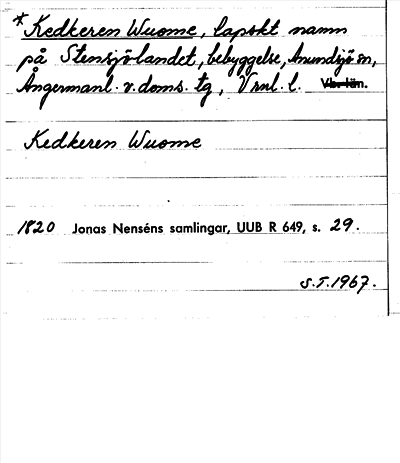 * Kedkeren Wuome, lapskt namn
på Stensjölandet, bebyggelse, Anundsjö sn,
Ångermanl. v. doms. tg, Vrnl. l. Vb. län.
Kedkeren Wuome
1820 Jonas Nenséns samlingar, UUB R 649, s. 29.
S.T. 1967.